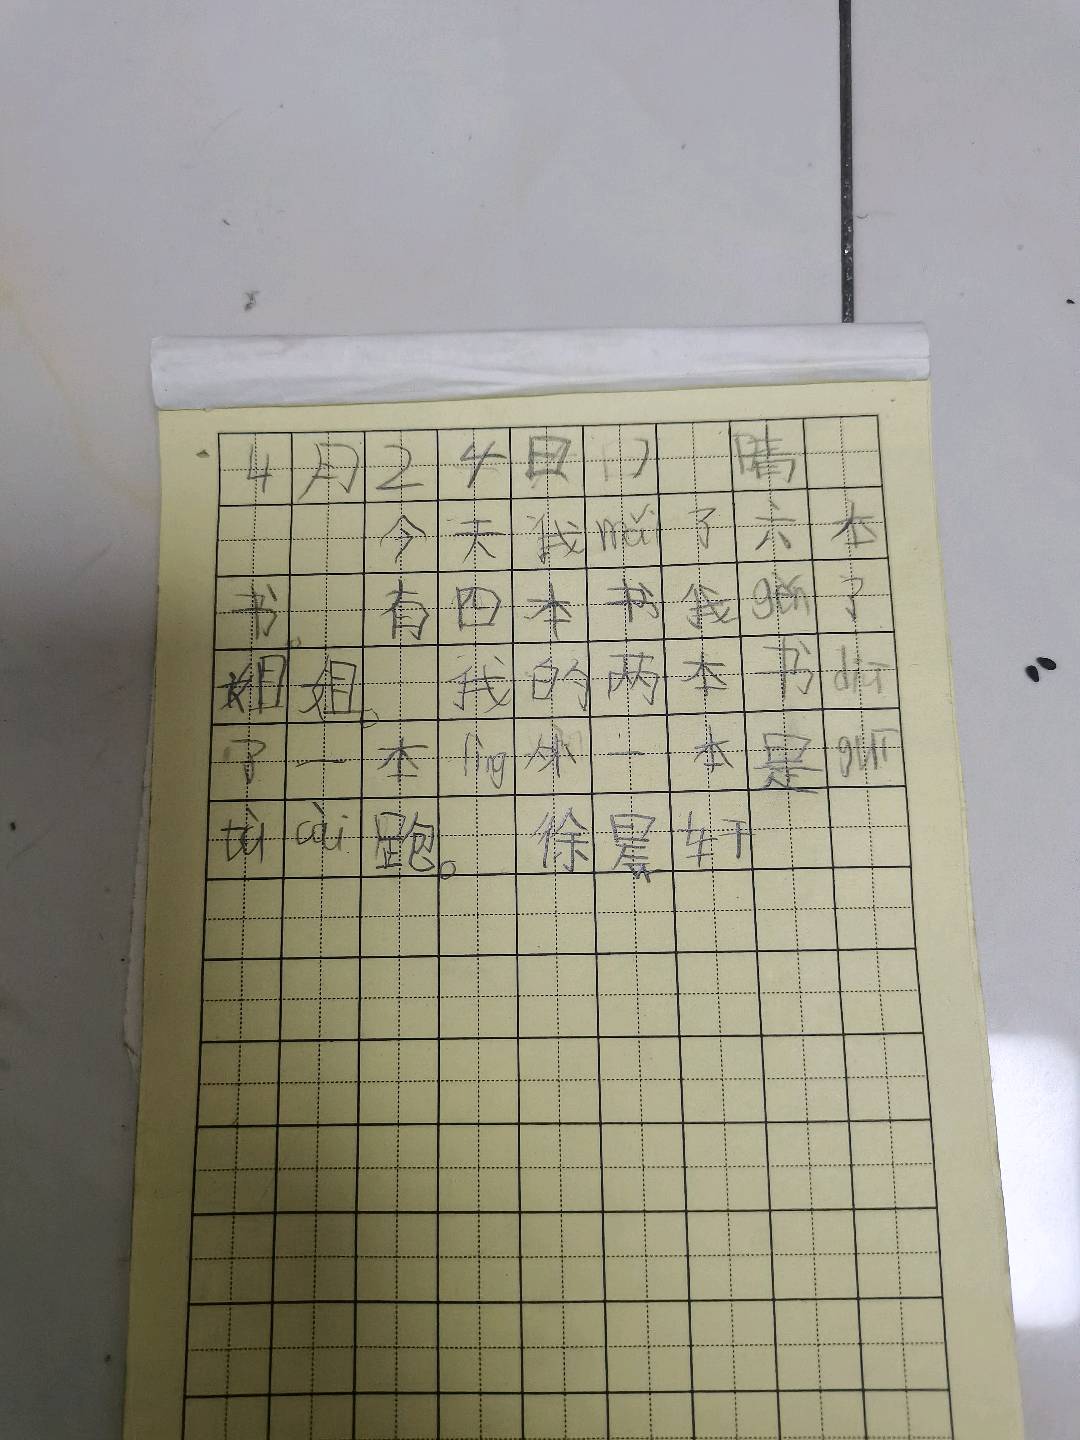 4月24日 晴
今天我mǎi了六本
书。有四本书我gěi了
姐姐。我的两本书diū
了一本lìng外一本是guī
tù sài跑。 徐晨轩